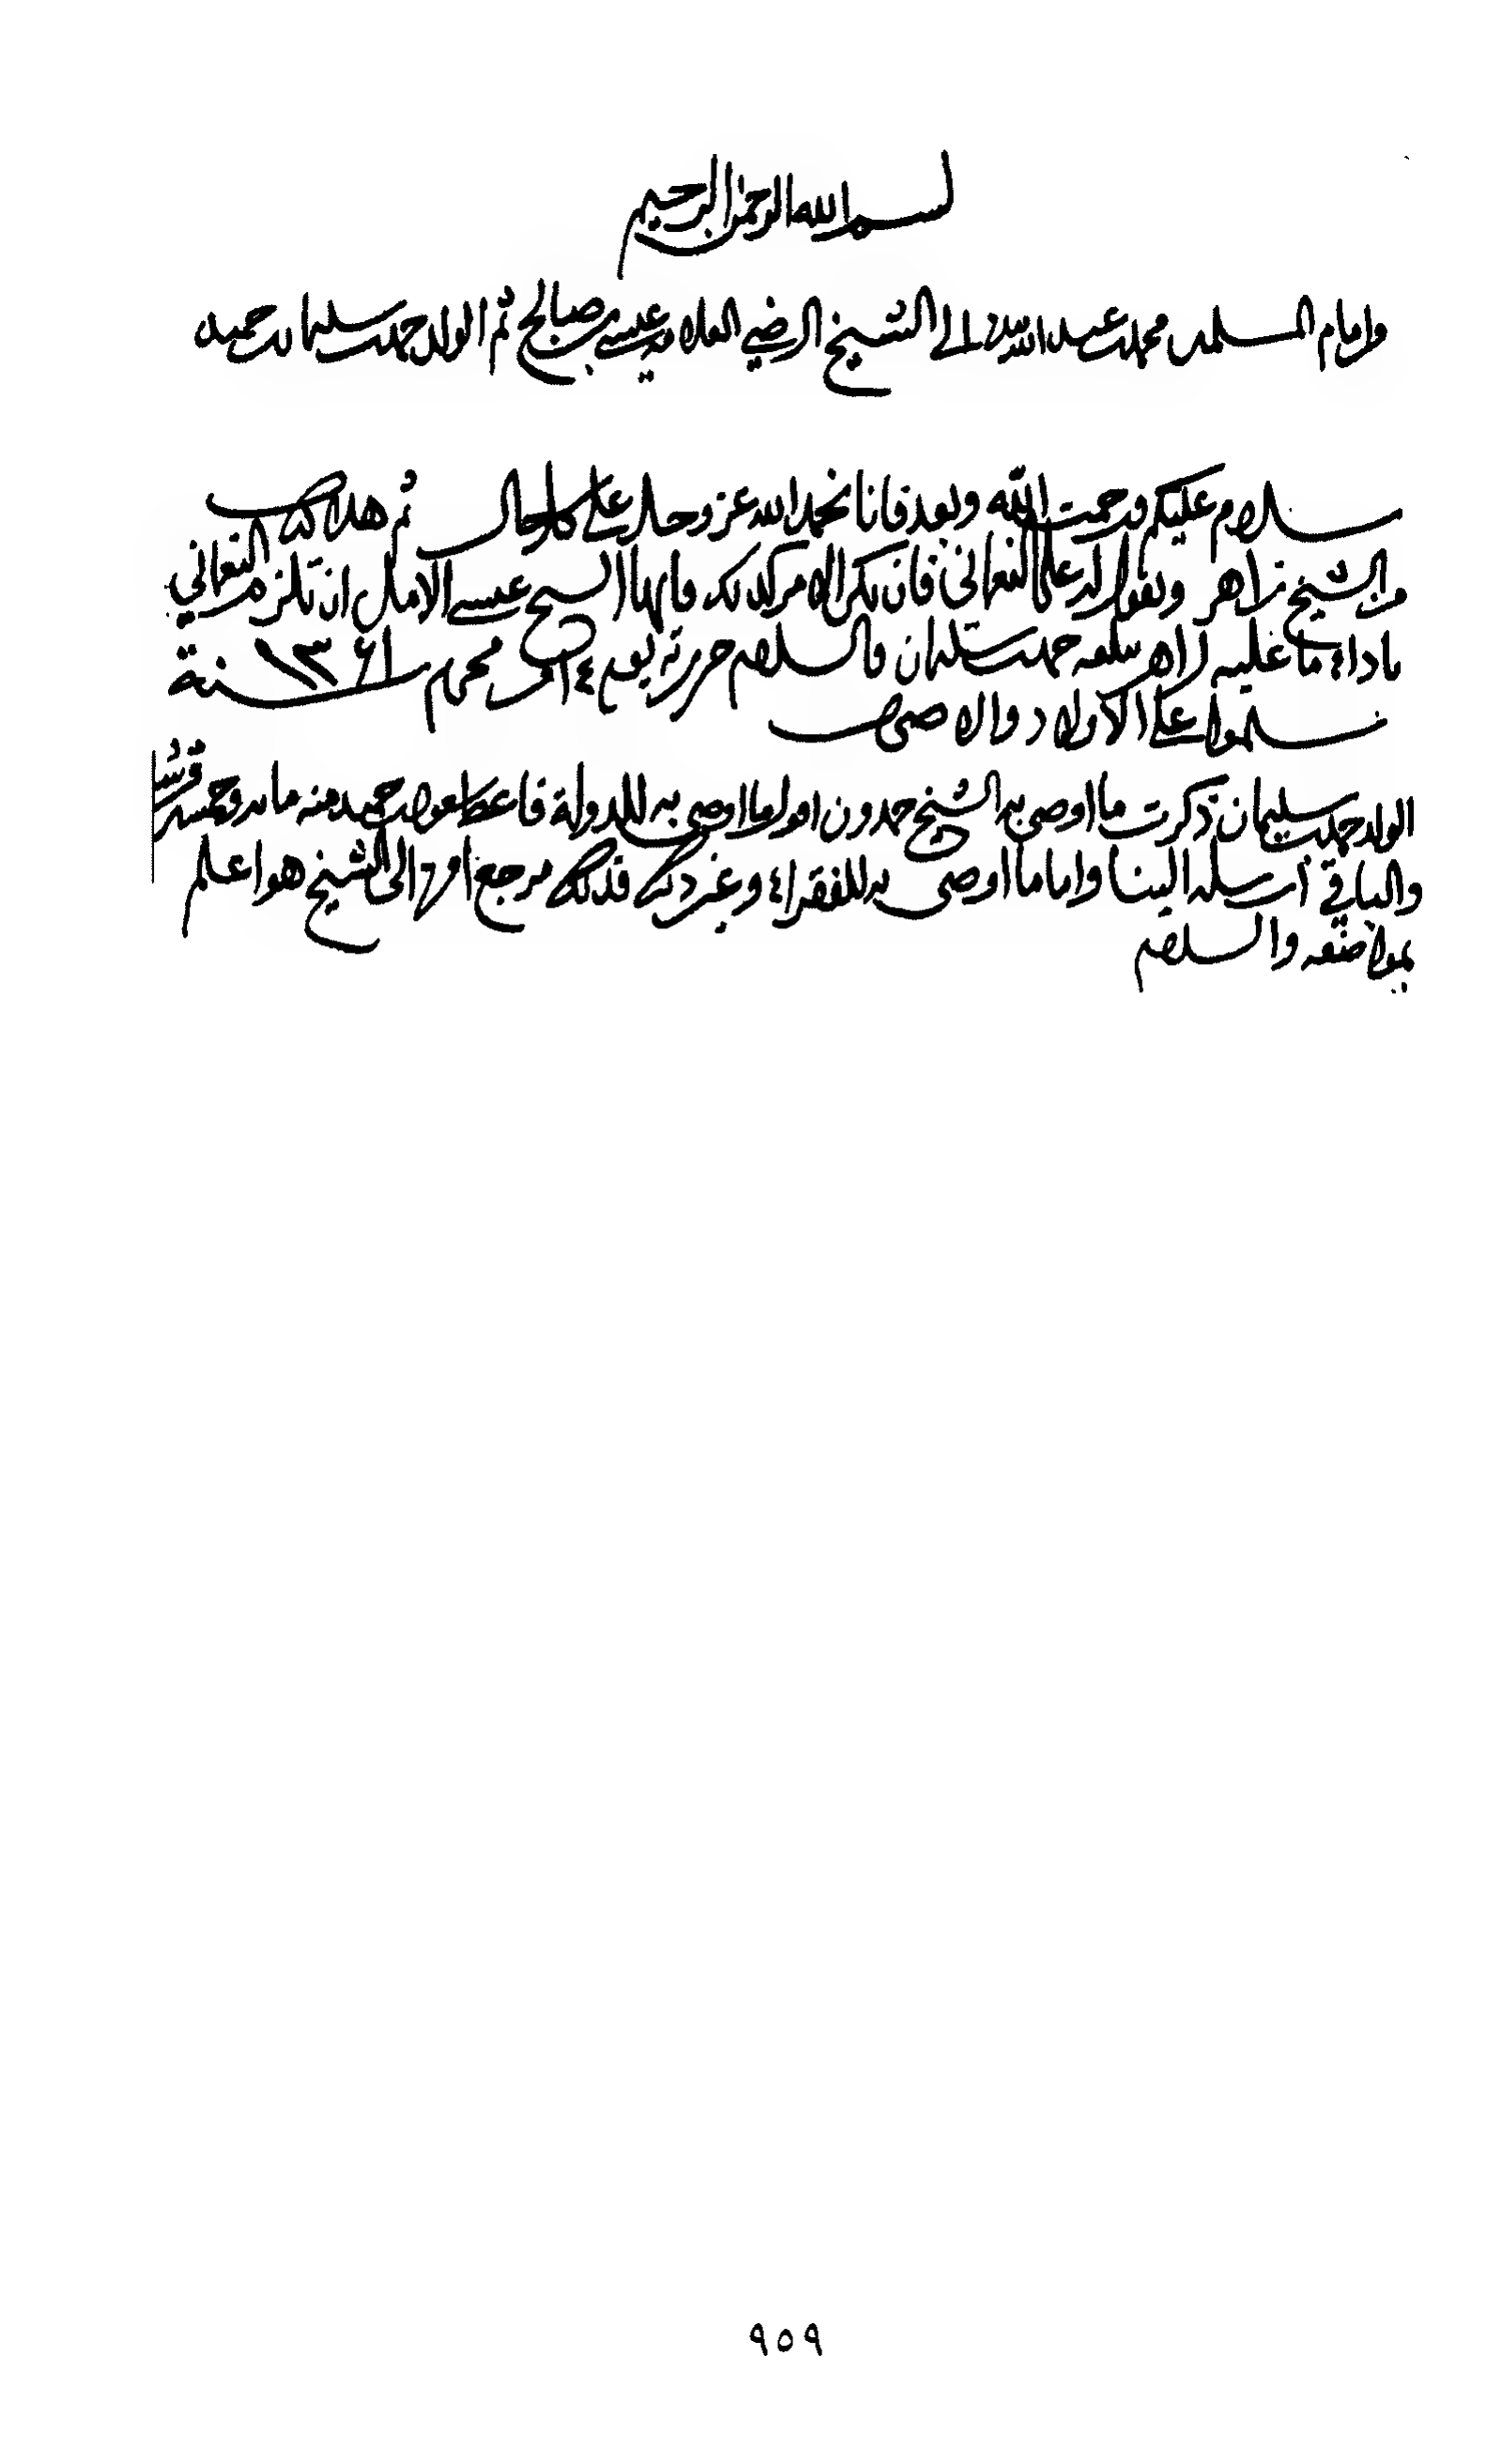 بسم الله الرحمن الرحيم
من امام المسلمين محمد بن عبدالله الى الشيخ الرضي العلامة عيسى بن صالح ثم الولد حمد بن سليمان بن حميد
سلام عليكم ورحمت الله وبعد فانا نحمد الله عز وجل على كل حال ثم هذا كتاب
من الشيخ زاهر ويقول له على النعماني فان يكن الامر كذلك فايها الشيخ عيسى الامل ان تلزم النعماني
باداء ما عليه زاهر حمد بن سليمان والسلام حررته يوم ١٤ محرم سنة ١٣٦١
سلموا على الاولاد والاصحاب
الولد حمد بن سليمان ذكرت ما اوصى به الشيخ حمدون اقول ما اوصى به للدولة فاعط بن حميد منه مائة وخمسين قرشا
والباقي أرسله الينا واما ما اوصى به للفقراء وغير ذلك فذلك مرجع الى الشيخ هو اعلم
بمواضعه والسلام
٩٥٩